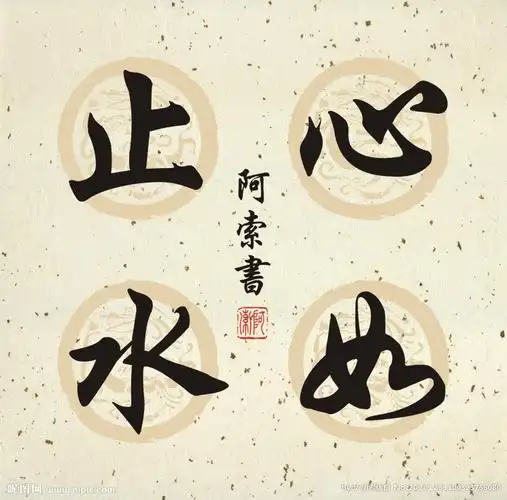 心如
止水
阿索書
昵图网 www.nipic.com